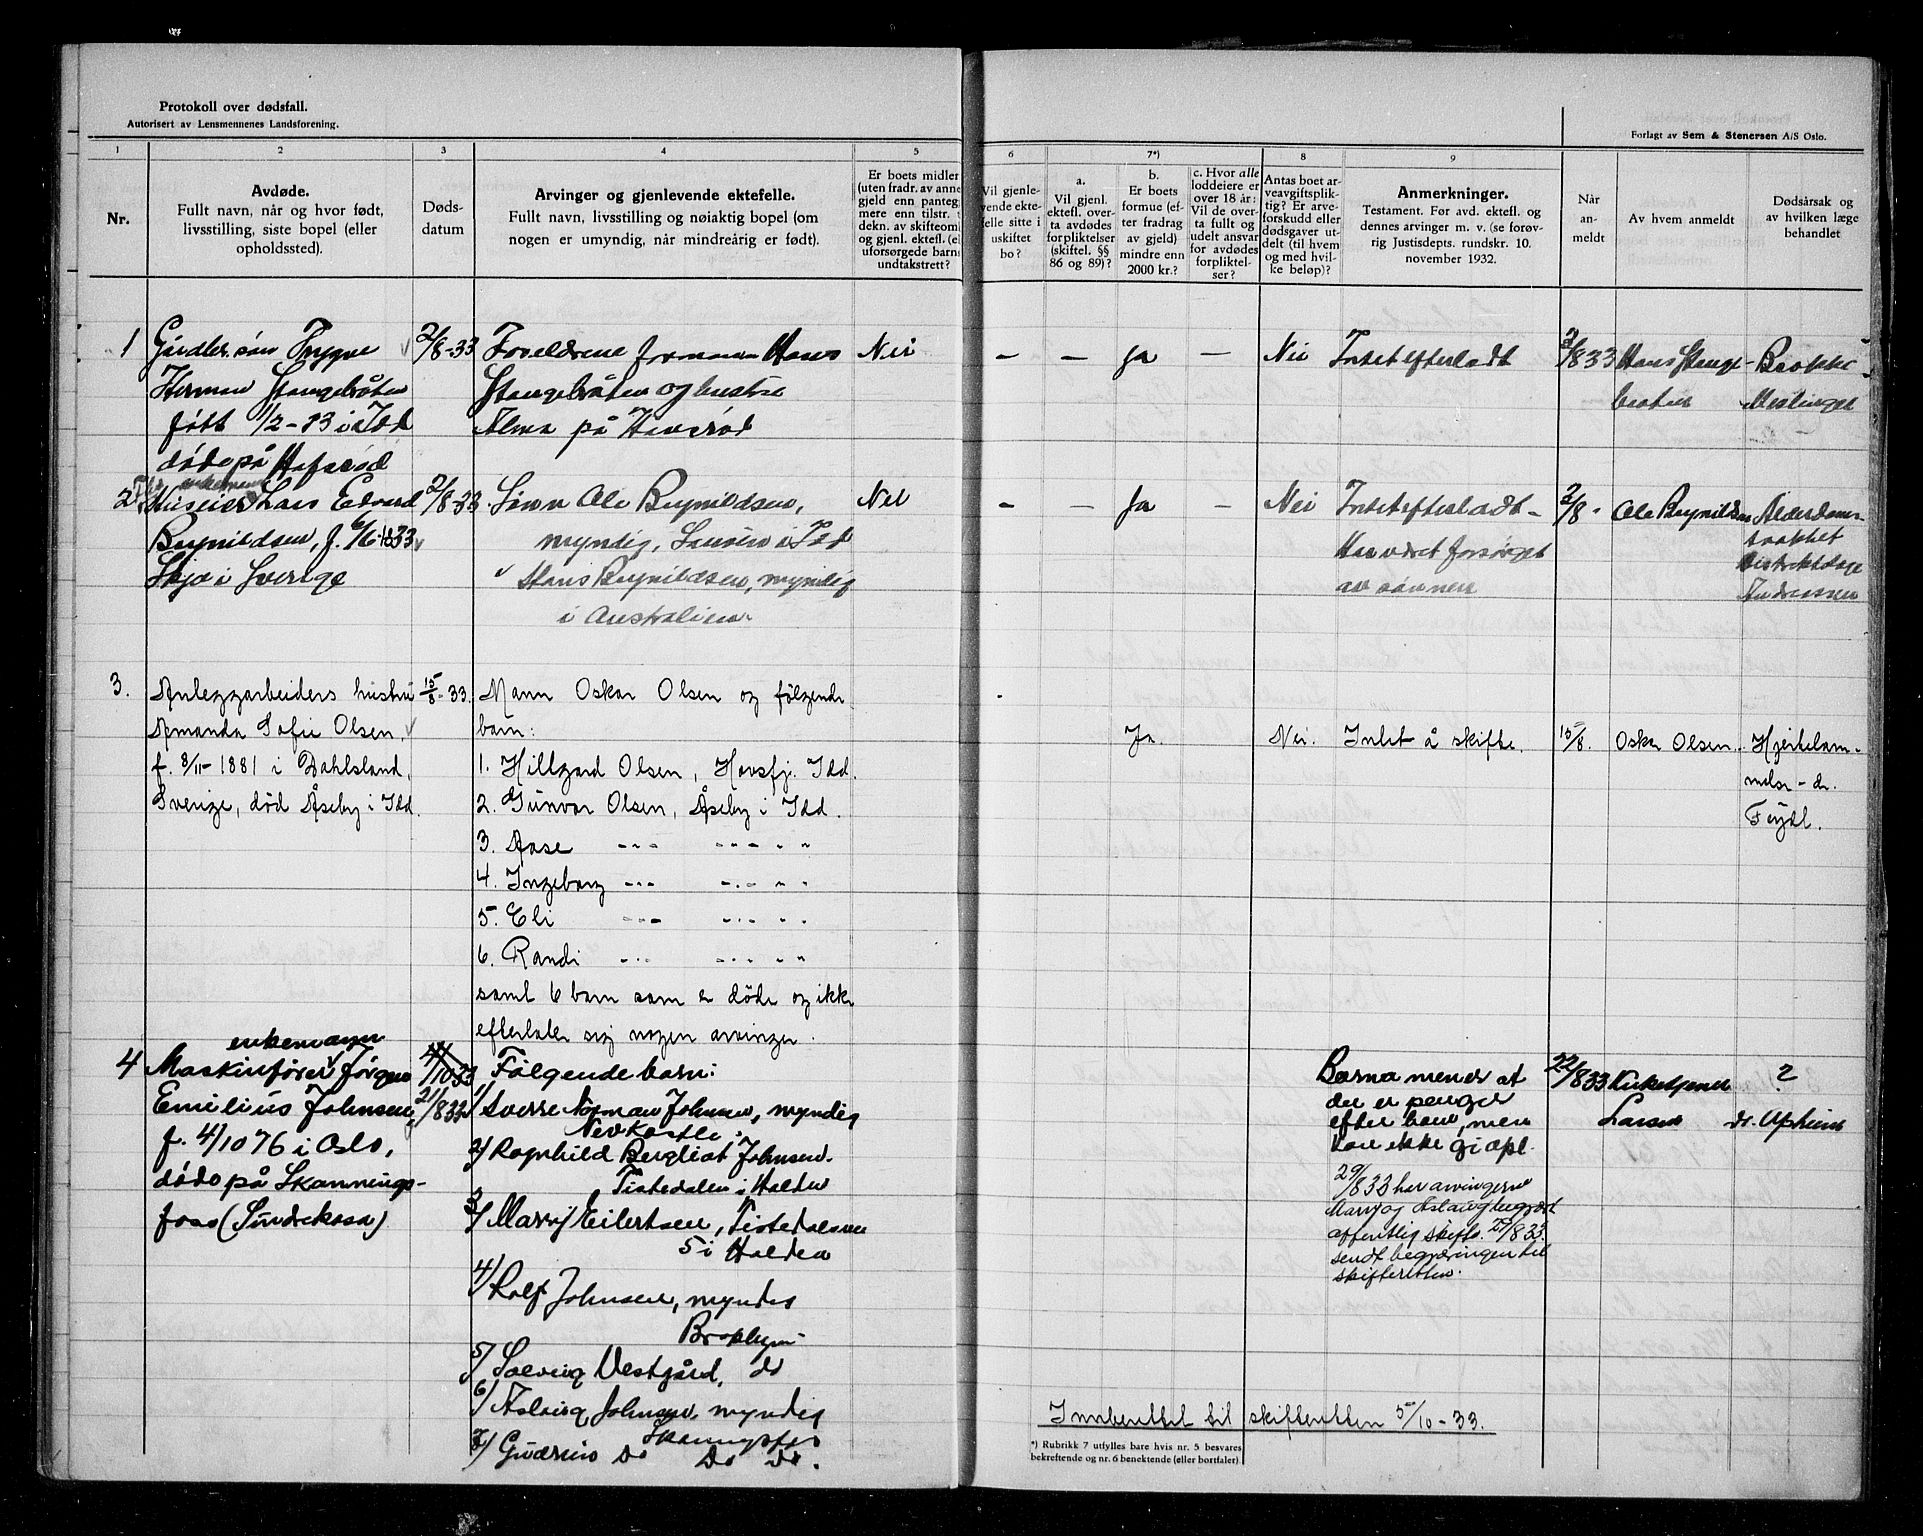 Protokoll over dødsfall.
Autorisert av Lensmennenes Landsforening.
Forlagt av Sem & Stenersen A/S Oslo.
1
2
3
4
5
6
7*)
8
9
Nr.
Avdøde.
Fullt navn, når og hvor født,
livsstilling, siste bopel (eller
opholdssted).
Døds-
datum
Arvinger og gjenlevende ektefelle.
Fullt navn, livsstilling og nøiaktig bopel (om
nogen er umyndig, når mindreårig er født).
Er boets midler
(uten fradr. av anne
gjeld enn panteg
mere enn tilstr.
dekn. av skifteom
og gjenl. ektef. (e
uforsørgede barns
undtakstrett?
Vil gjenle-
vende ekte-
felle sitte i
uskiftet
bo?
a.
Vil gjenl.
ektefl. over-
ta avdødes
forpliktelser
(skiftel. §§
86 og 89)?
b.
Er boets
formue (ef-
ter fradrag
av gjeld)
mindre enn
2000 kr.?
c. Hvor alle
loddeiere er
over 18 år:
Vil de over-
ta fullt og
udelt ansvar
for avdødes
forpliktel-
ser?
Antas boet ar-
veavgiftsplik-
tig? Er arve-
forskudd eller
dødsgaver ut-
delt (til hvem
og med hvil-
ke beløp)?
Anmerkninger.
Testament. Før avd. ektefl. og
dennes arvinger m. v. (se forøv-
rig Justisdepts. rundskr. 10.
november 1932.
Når
an-
meldt
Av hvem anmeldt
Dødsårsak og
av hvilken læge
behandlet
1 Trygve 2/8-33 Foreldrene formann Hans Nei – – Ja – Nei Intet efterladt 2/8 33 Hans Stange-
Herman Stangebråten Stangebråten og hustru bråten
født 1/2-13 i Idd Alma på Havsrød
døde på Hafsrød
enkemann
2 Huseier Lars Edvard 2/8 33 Sønn Ole Brynildsen, Nei – Ja – Nei Intet efterladt – 2/8 Ole Brynildsen
Brynildsen, f. 6/6-1833 myndig, i Idd Har været forsørget
i Sverige Hans Brynildsen, myndig av sønnen Distriktslæge
i Australien. Andreassen
3. Anleggsarbeiders hustru 15/8-33. Mann Oskar Olsen og følgende
Amanda Sofie Olsen, barn: Ja. Nei. Intet å skifte. 15/8. Oskar Olsen. Hjertelam-
f. 8/11-1881 i Dahlsland, 1. Hillgard Olsen, Havsfj. Idd. melse – dr.
Sverige, død Åseby i Idd. 2. Gunvor Olsen, Åseby i Idd. Feydl.
3. Aase --- --- " "
4. Ingeborg --- --- " "
5. Eli --- --- " "
6. Randi --- --- " "
samt 6 barn som er døde og ikke
efterlater sig nogen arvinger.
enkemann
4 Maskinfører Jørgen 4/10 33 Følgende barn: Barna mener at 22/8 33 Kirketjener ?
Emilius Johnsen, 21/8 33 1/ Sverre Norman Johnsen, myndig der er penger Larsen dr. Opheim
Nevkastle. efter ham, men
f. 4/10 76 i Oslo, 2/ Ragnhild Bergliot Johnsen kan ikke gi opl.
døde på Skannings- Tistedalen i Halden 29/8 33 har arvingerne
foss (Sundrekasa) 3/ Marry Eilertsen, Tistedalen Marry og Aslaug begjært
5 i Halden offentlig skifte. 29/8 33.
4/ Rolf Johnsen, myndig sendt begjæringen til
Brooklyn skifteretten.
5/ Solveig Vestgård, do
6/ Aslaug Johnsen, myndig
Skanningsfoss
7/ Gudrun Do Do Do.
Innberettet til skifteretten 5/10-33.
*) Rubrikk 7 utfylles bare hvis nr. 5 besvares
bekreftende og nr. 6 benektende (eller bortfaler)